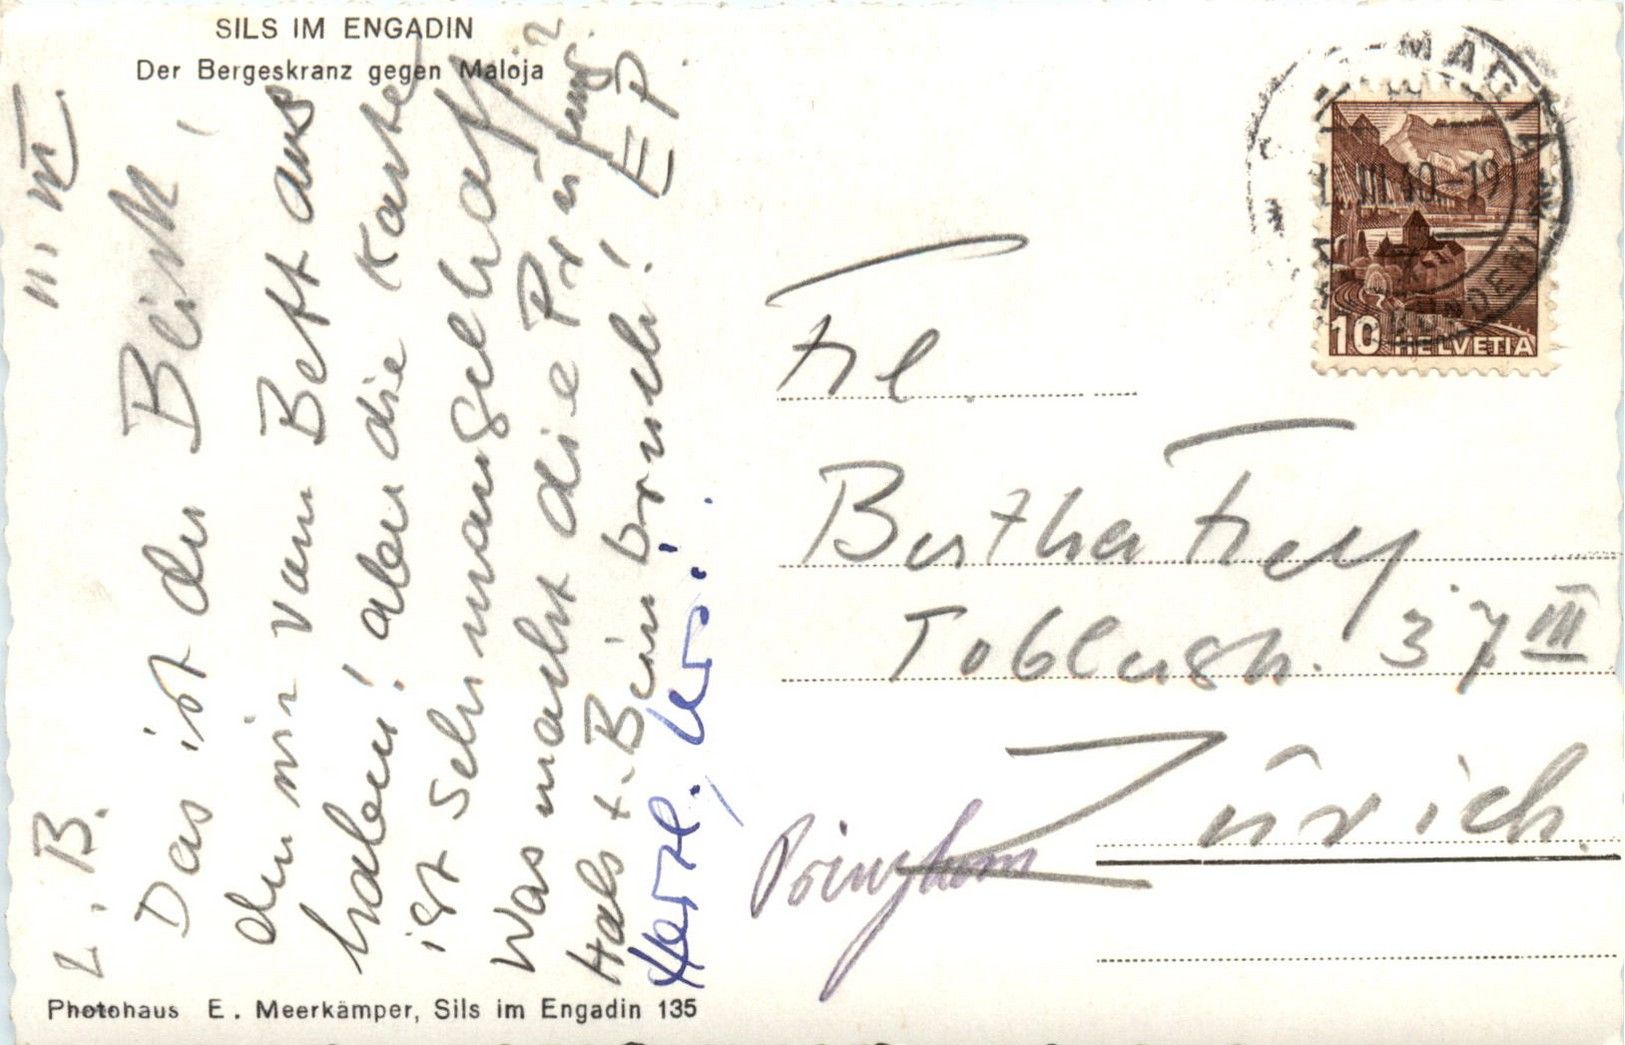 SILS IM ENGADIN
Der Bergeskranz gegen Maloja
III
L. B.
Das ist der Blick
den wir vom Bett aus
haben! aber die Karte
ist sehr mangelhaft
Was macht die
Hals + Beinbruch!
E P.
Herzl.
Photohaus E. Meerkämper, Sils im Engadin 135
10 HELVETIA
III.40-19
Frl.
Bertha Frey
Toblerstr. 37 III
Zürich.